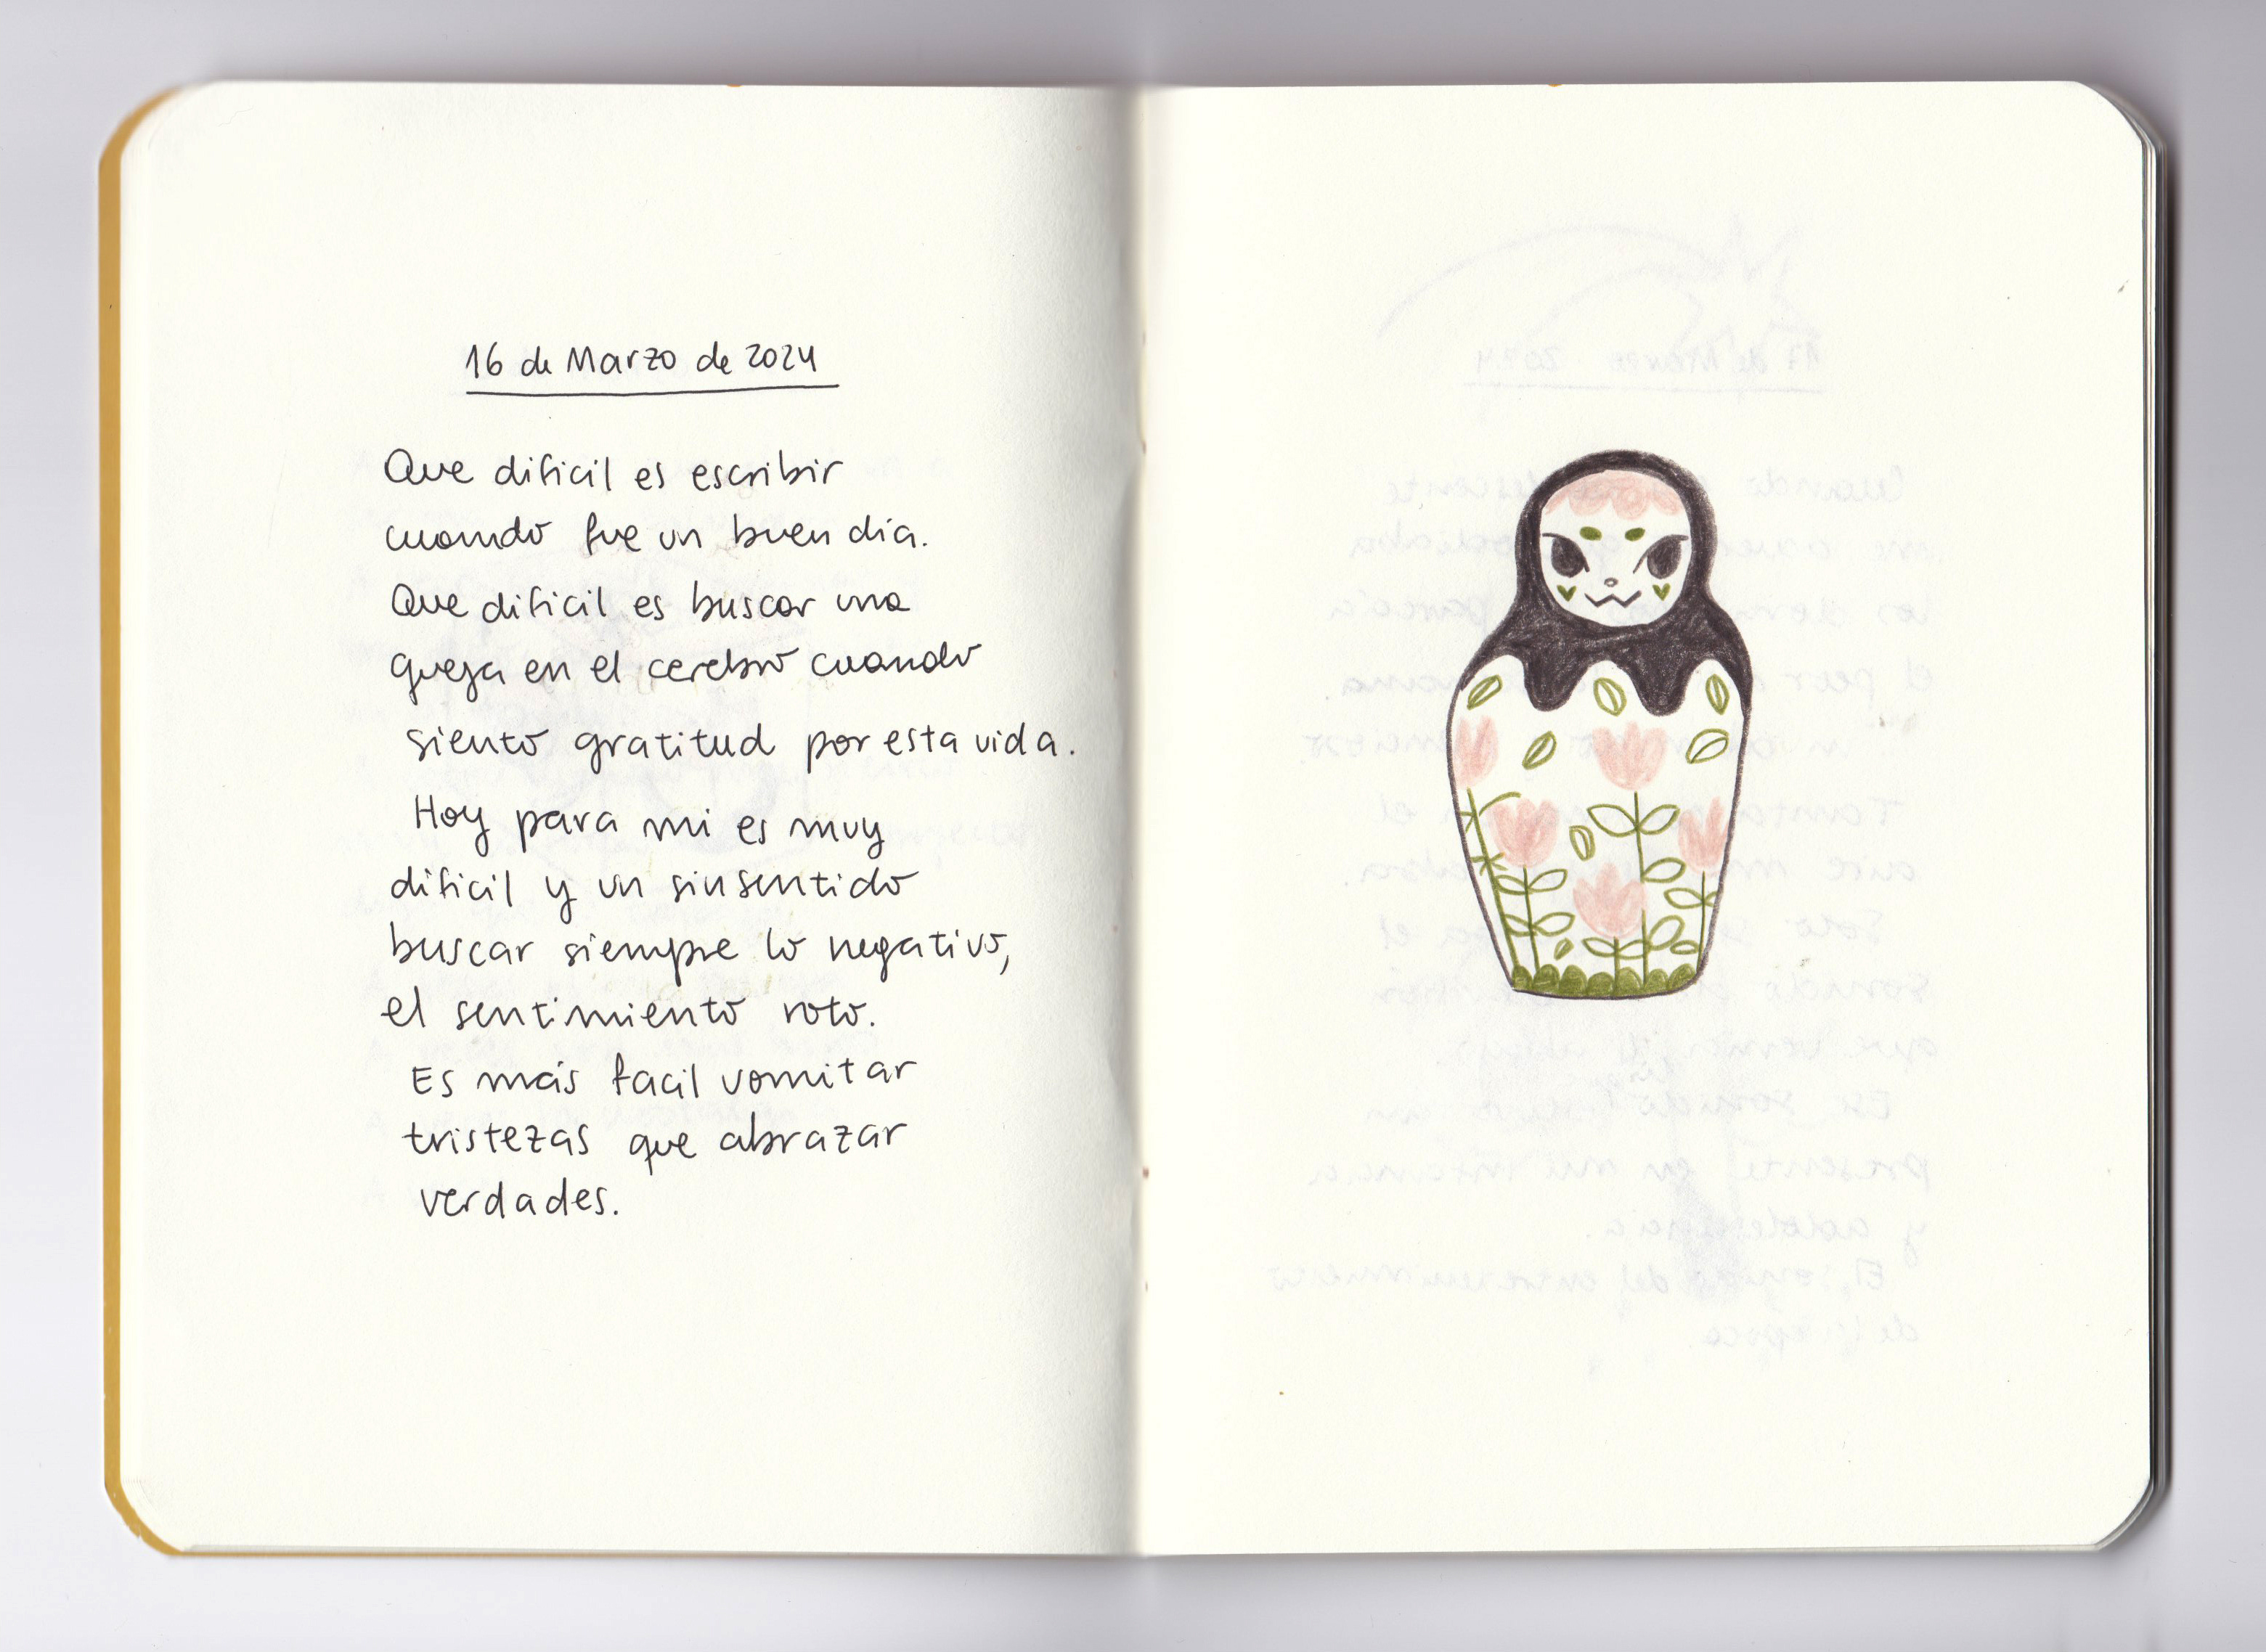 16 de Marzo de 2024
Que dificil es escribir
cuando fue un buen dia.
Que dificil es buscar una
queja en el cerebro cuando
siento gratitud por esta vida.
Hoy para mi es muy
dificil y un sinsentido
buscar siempre lo negativo,
el sentimiento roto.
Es más facil vomitar
tristezas que abrazar
verdades.